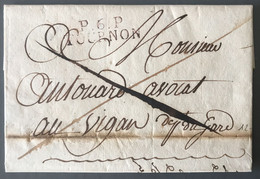 P. 6. P
TOURNON
Monsieur
Antouard avocat
au Vigan Dpt du Gard